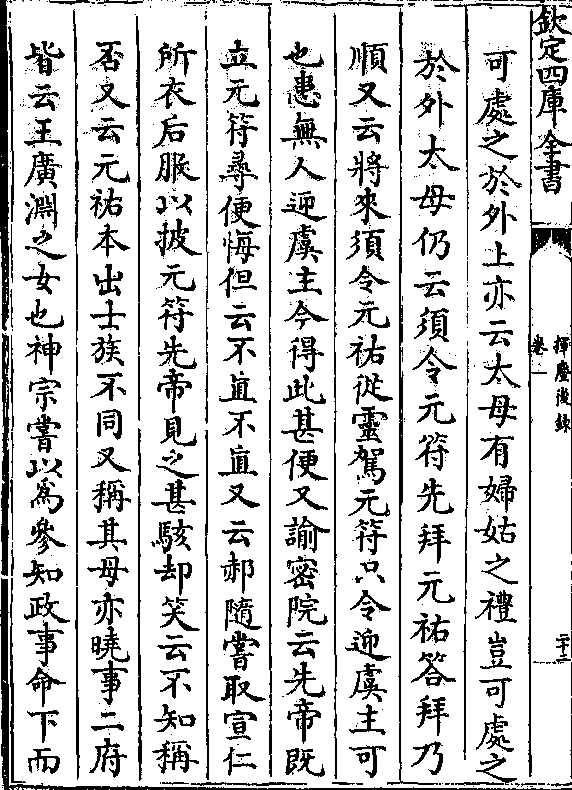 欽定四庫全書
揮麈後錄
卷一
二十二
可處之於外上亦云太母有婦姑之禮豈可處之
於外太母仍云須令元符先拜元祐答拜乃
順又云將來須令元祐從靈駕元符只令迎虞主可
也患無人迎虞主今得此甚便又諭密院云先帝既
立元符尋便悔但云不直不直又云郝隨嘗取宣仁
所衣后服以披元符先帝見之甚駭却笑云不知稱
否又云元祐本出士族不同又稱其母亦曉事二府
皆云王廣淵之女也神宗嘗以為參知政事命下而